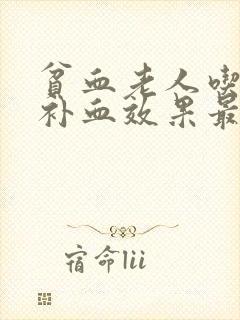 贫血老人喫
补血效果最
宿命lii